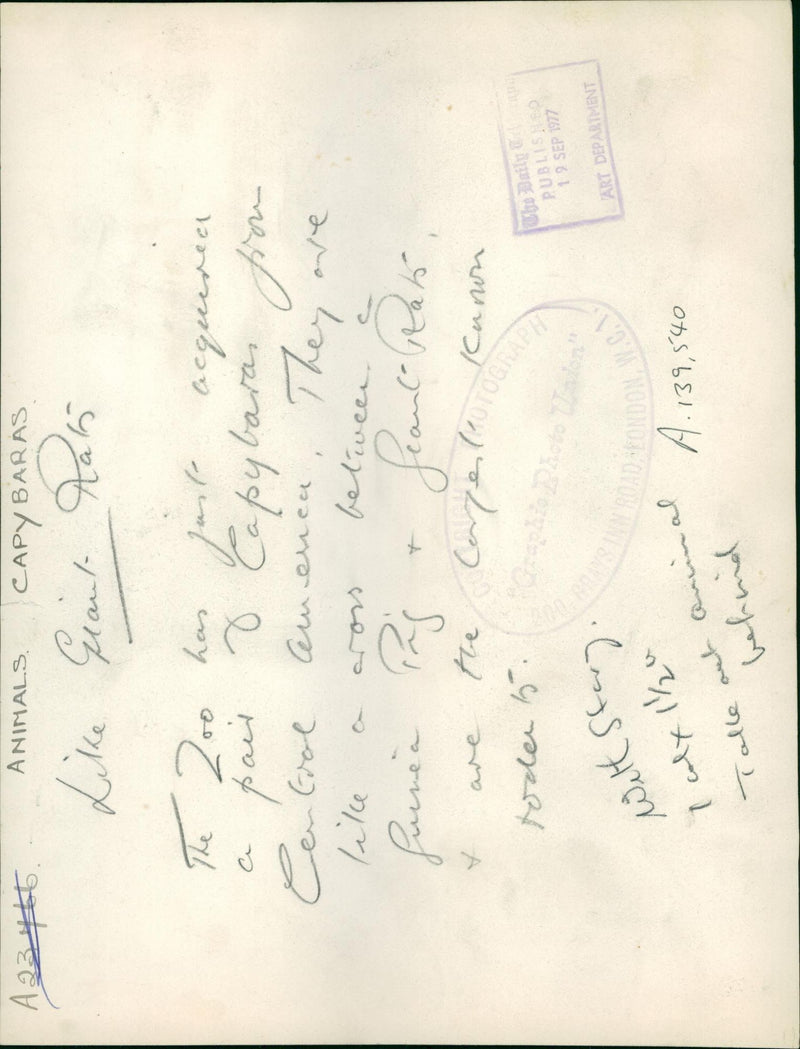 A 23466. ANIMALS. CAPYBARAS.
Like Giant Rats
The Zoo has just acquired
a pair of Capybaras from
Central America. They are
like a cross between a
Guinea Pig + Giant Rats,
+ are the largest known
rodents.
With Story.
1 col x 1 1/2"
Take out animal
behind
A.139,540
The Daily Telegraph
PUBLISHED
19 SEP 1977
ART DEPARTMENT
COPYRIGHT PHOTOGRAPH
"Graphic Photo Union"
200, GRAY'S INN ROAD, LONDON, W.C.1.